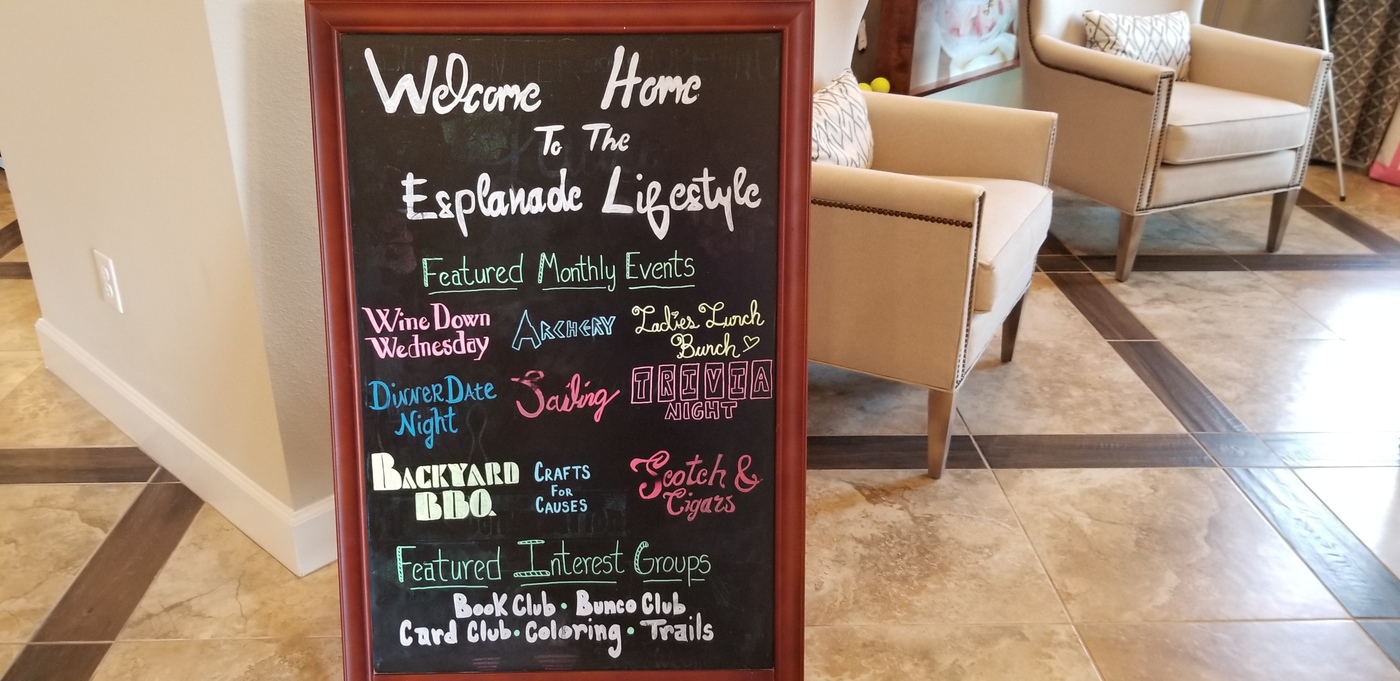 Welcome Home
To The
Esplanade Lifestyle
Featured Monthly Events
Wine Down
Wednesday
ARCHERY
Ladies Lunch
Bunch ♡
DINNER DATE
Night
Sailing
TRIVIA
NIGHT
BACKYARD
BBQ
CRAFTS
FOR
CAUSES
Scotch &
Cigars
Featured Interest Groups
Book Club • Bunco Club
Card Club • Coloring • Trails